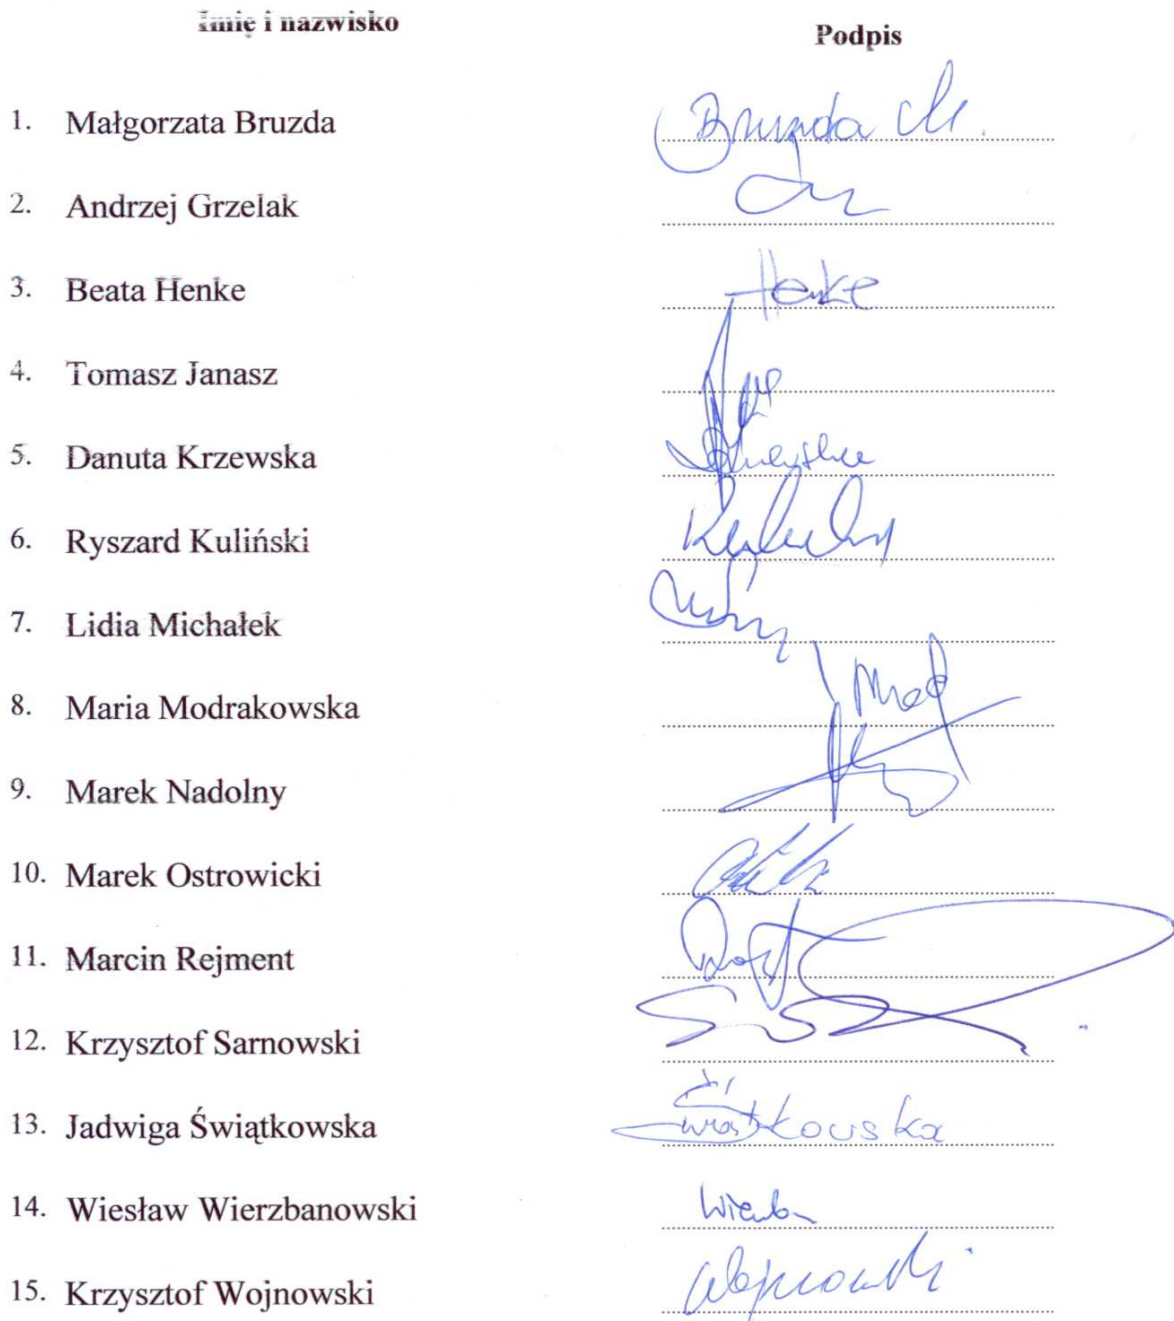 Imię i nazwisko Podpis
1. Małgorzata Bruzda Bruzda M.
2. Andrzej Grzelak
3. Beata Henke Henke
4. Tomasz Janasz
5. Danuta Krzewska
6. Ryszard Kuliński
7. Lidia Michałek
8. Maria Modrakowska
9. Marek Nadolny
10. Marek Ostrowicki
11. Marcin Rejment
12. Krzysztof Sarnowski
13. Jadwiga Świątkowska Świątkowska
14. Wiesław Wierzbanowski
15. Krzysztof Wojnowski Wojnowski